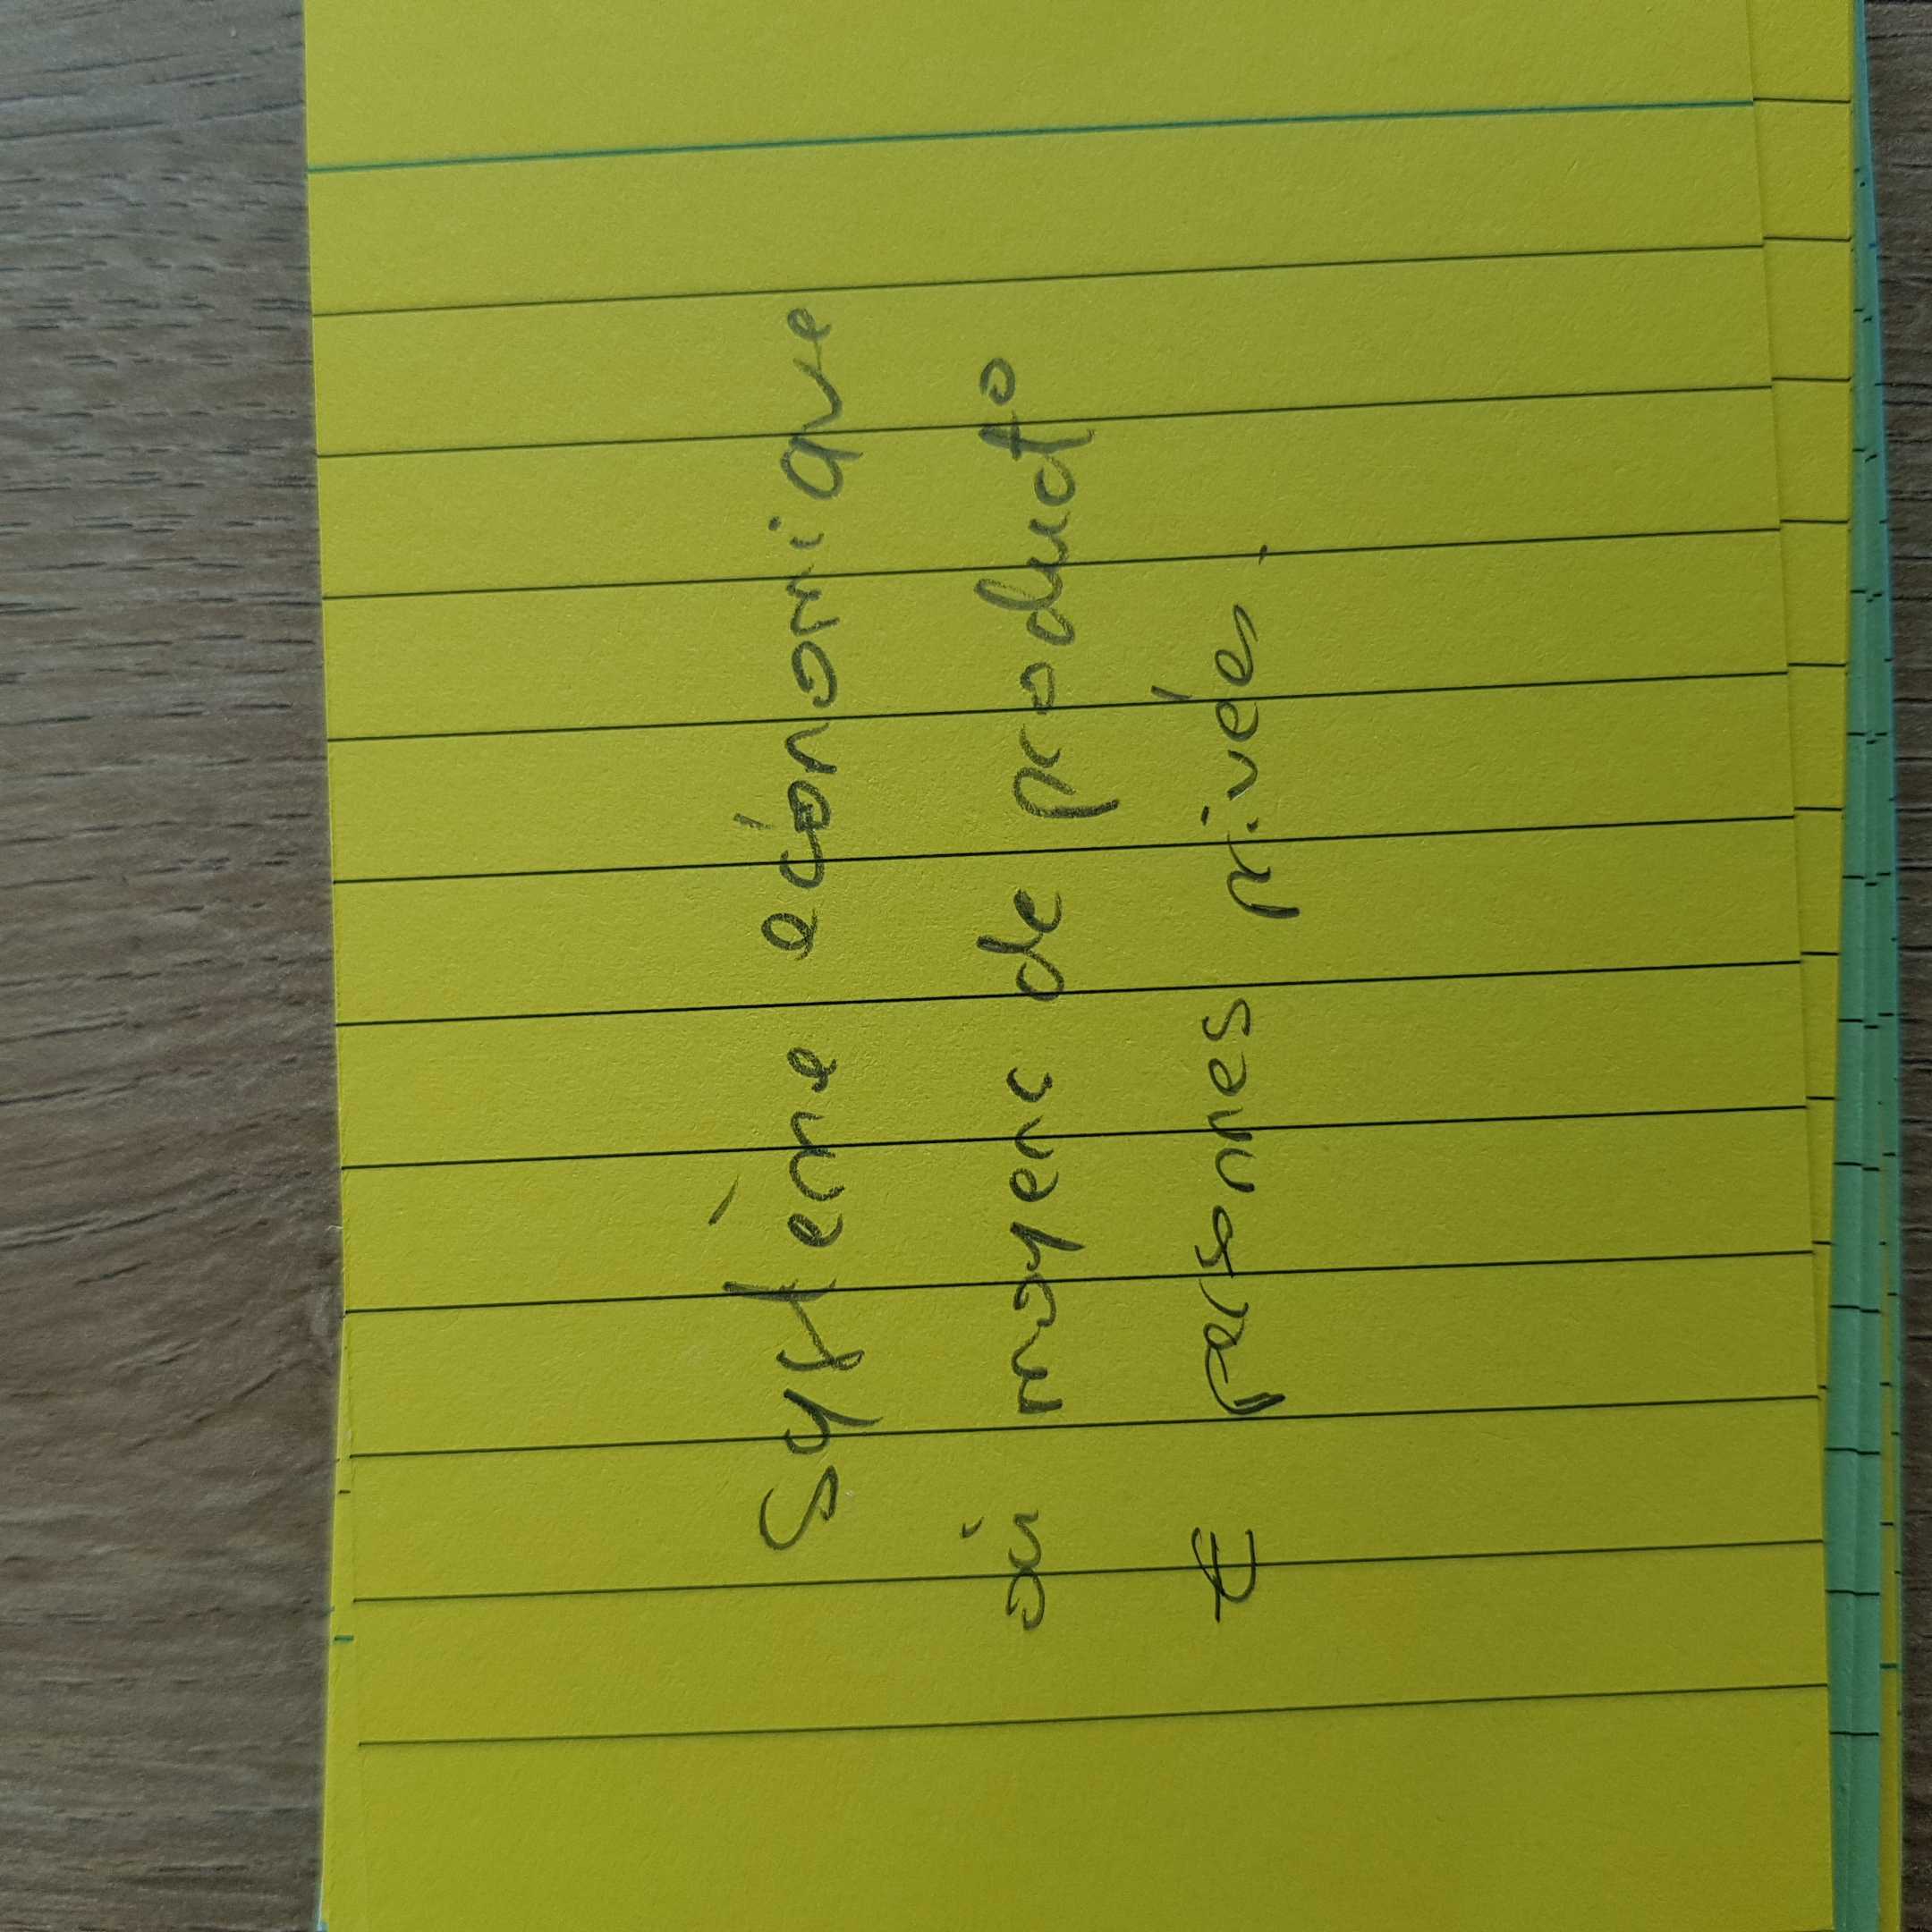 Système économique
où moyens de producto
€ personnes privées.